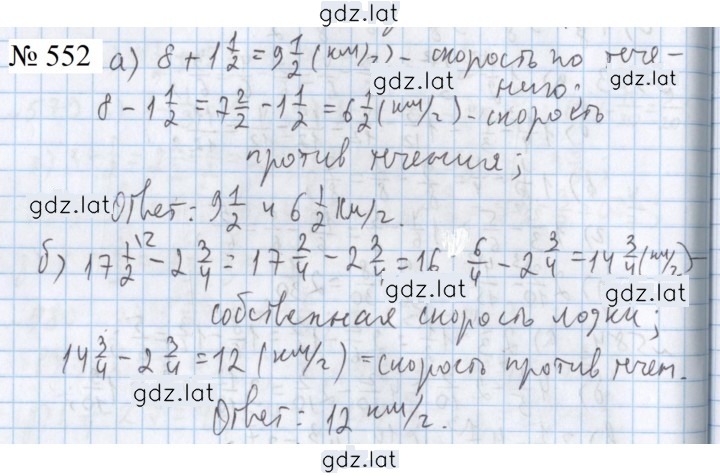 gdz.lat
№ 552 а) 8 + 1 1/2 = 9 1/2 (км/ч) - скорость по тече-
gdz.lat gdz.lat
нию;
8 - 1 1/2 = 7 2/2 - 1 1/2 = 6 1/2 (км/ч) - скорость
против течения;
gdz.lat Ответ: 9 1/2 и 6 1/2 км/ч.
б) 17 1/2 \2 - 2 3/4 = 17 2/4 - 2 3/4 = 16 6/4 - 2 3/4 = 14 3/4 (км/ч) -
gdz.lat gdz.lat
собственная скорость лодки;
14 3/4 - 2 3/4 = 12 (км/ч) = скорость против течен.
gdz.lat gdz.lat
Ответ: 12 км/ч.
gdz.lat